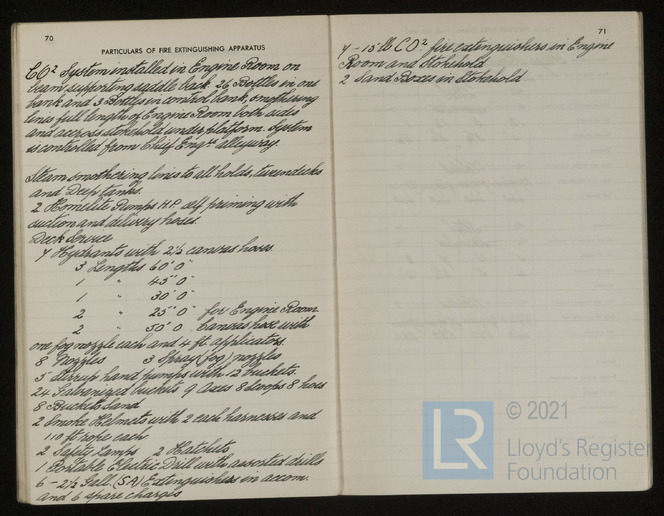 70
PARTICULARS OF FIRE EXTINGUISHING APPARATUS
CO2 System installed in Engine Room on
beam supporting saddle back. 26 Bottles in one
bank and 3 Bottles in control bank, smothering
lines full length of Engine Room both sides
and across stokehold under platform. System
is controlled from Chief Engrs alleyway.
Steam smothering lines to all holds, tweendecks
and Deep tanks.
2 Homelite Pumps H.P. self priming with
suction and delivery hoses.
Deck Service
7 Hydrants with 2½ canvas hoses.
3 Lengths 60' 0"
1 " 45' 0"
1 " 30' 0"
2 " 25' 0" for Engine Room
2 " 50' 0" Canvas hose with
one fog nozzle each and 4 ft applicators.
8 Nozzles 3 Spray (fog) nozzles
5 stirrup hand pumps with 12 buckets.
24 Galvanized buckets 9 axes 8 scoops 8 hoes
8 Buckets sand
2 Smoke Helmets with 2 each harnesses and
110 ft rope each
2 Safety Lamps 2 Hatchets
1 Portable Electric Drill with assorted drills
6 - 2½ Gall. (SA) Extinguishers in accom.
and 6 spare charges
71
7 - 15 lb CO2 fire extinguishers in Engine
Room and Stokehold
2 Sand Boxes in Stokehold
LR
© 2021
Lloyd's Register
Foundation